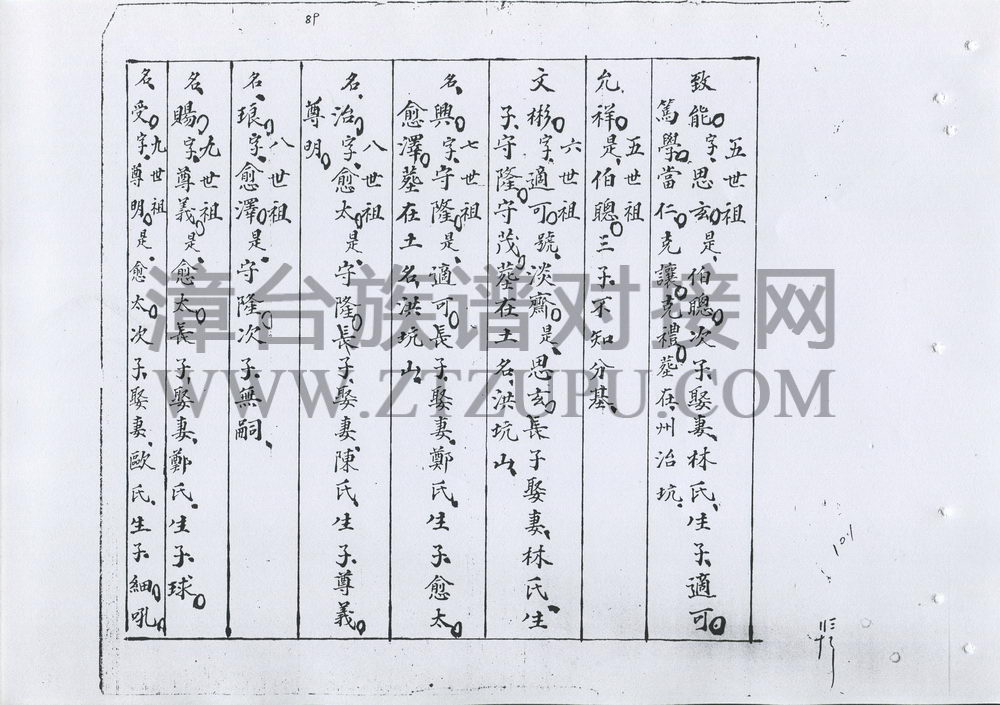 89
五世祖
致能字思玄是伯聰次子娶妻林氏生子適可
篤學當仁克讓克禮墓在州治坑
五世祖
允祥是伯聰三子不知分基
六世祖
文彬字適可號淡齋是思玄長子娶妻林氏生
子守隆守茂墓在土名洪坑山
七世祖
名興字守隆是適可長子娶妻鄭氏生子愈太
愈澤墓在土名洪坑山
八世祖
名治字愈太是守隆長子娶妻陳氏生子尊義
尊明
八世祖
名琅字愈澤是守隆次子無嗣
九世祖
名賜字尊義是愈太長子娶妻鄭氏生子球
九世祖
名受字尊明是愈太次子娶妻歐氏生子細吼
漳台族谱对接网
WWW.ZTZUPU.COM